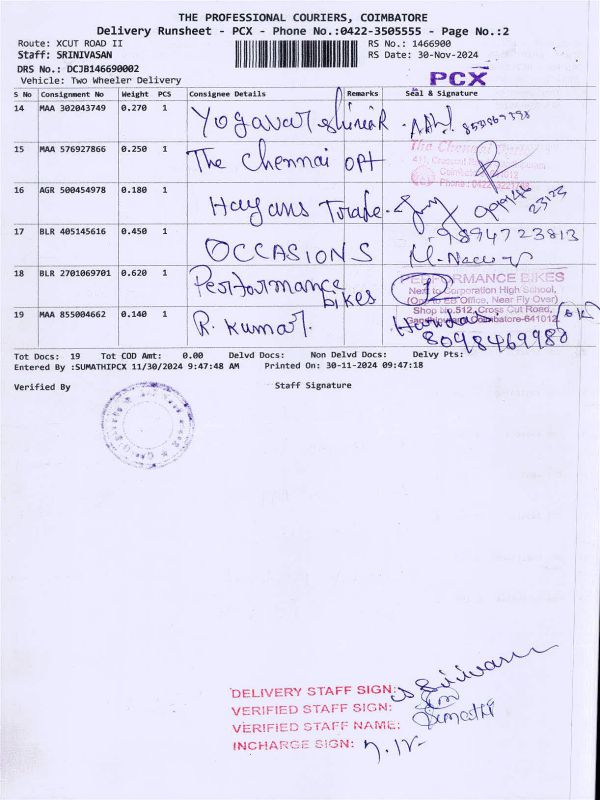 THE PROFESSIONAL COURIERS, COIMBATORE
Delivery Runsheet - PCX - Phone No.:0422-3505555 - Page No.:2
Route: XCUT ROAD II RS No.: 1466900
Staff: SRINIVASAN RS Date: 30-Nov-2024
DRS No.: DCJB146690002
Vehicle: Two Wheeler Delivery PCX
S No Consignment No Weight PCS Consignee Details Remarks Seal & Signature
14 MAA 302043749 0.270 1
15 MAA 576927866 0.250 1 The Chennai OPt
The Chennai
16 AGR 500454978 0.180 1
17 BLR 405145616 0.450 1 OCCASIONS 9894723813
18 BLR 2701069701 0.620 1 Performance bikes
PERFORMANCE BIKES
Next to Corporation High School,
(Opp to EB Office, Near Fly Over)
Shop No.512, Cross Cut Road,
Gandhipuram, Coimbatore-641012
19 MAA 855004662 0.140 1 R. Kumar. 8098469988
Tot Docs: 19 Tot COD Amt: 0.00 Delvd Docs: Non Delvd Docs: Delvy Pts:
Entered By :SUMATHIPCX 11/30/2024 9:47:48 AM Printed On: 30-11-2024 09:47:18
Verified By Staff Signature
DELIVERY STAFF SIGN:
VERIFIED STAFF SIGN:
VERIFIED STAFF NAME: Sumathi
INCHARGE SIGN: